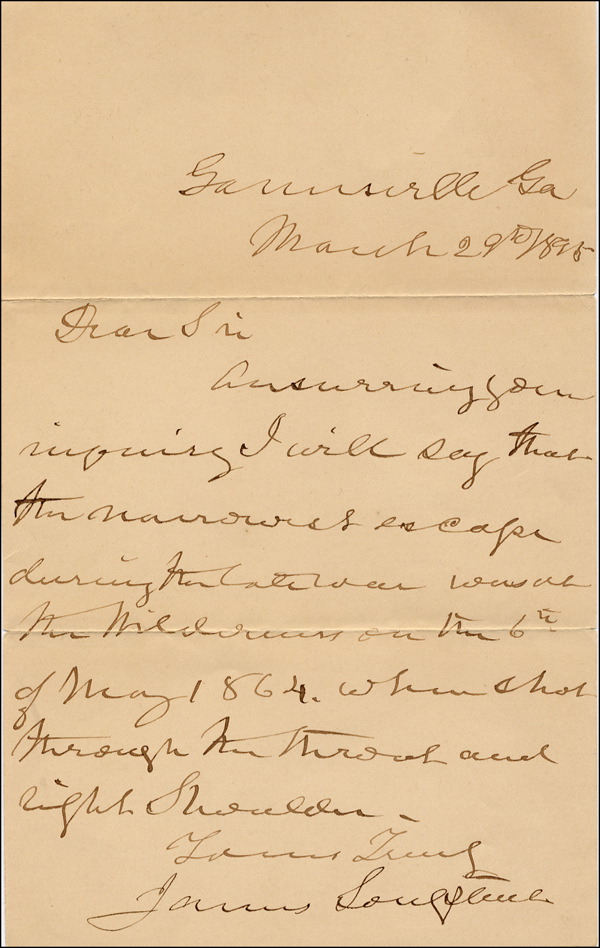 Gainesville Ga
March 29th/1895
Dear Sir
Answering your
inquiry I will say that
the narrowest escape
during the late war was at
the Wilderness on the 6th
of May 1864. when shot
through the throat and
right Shoulder -
Yours Truly
James Longstreet